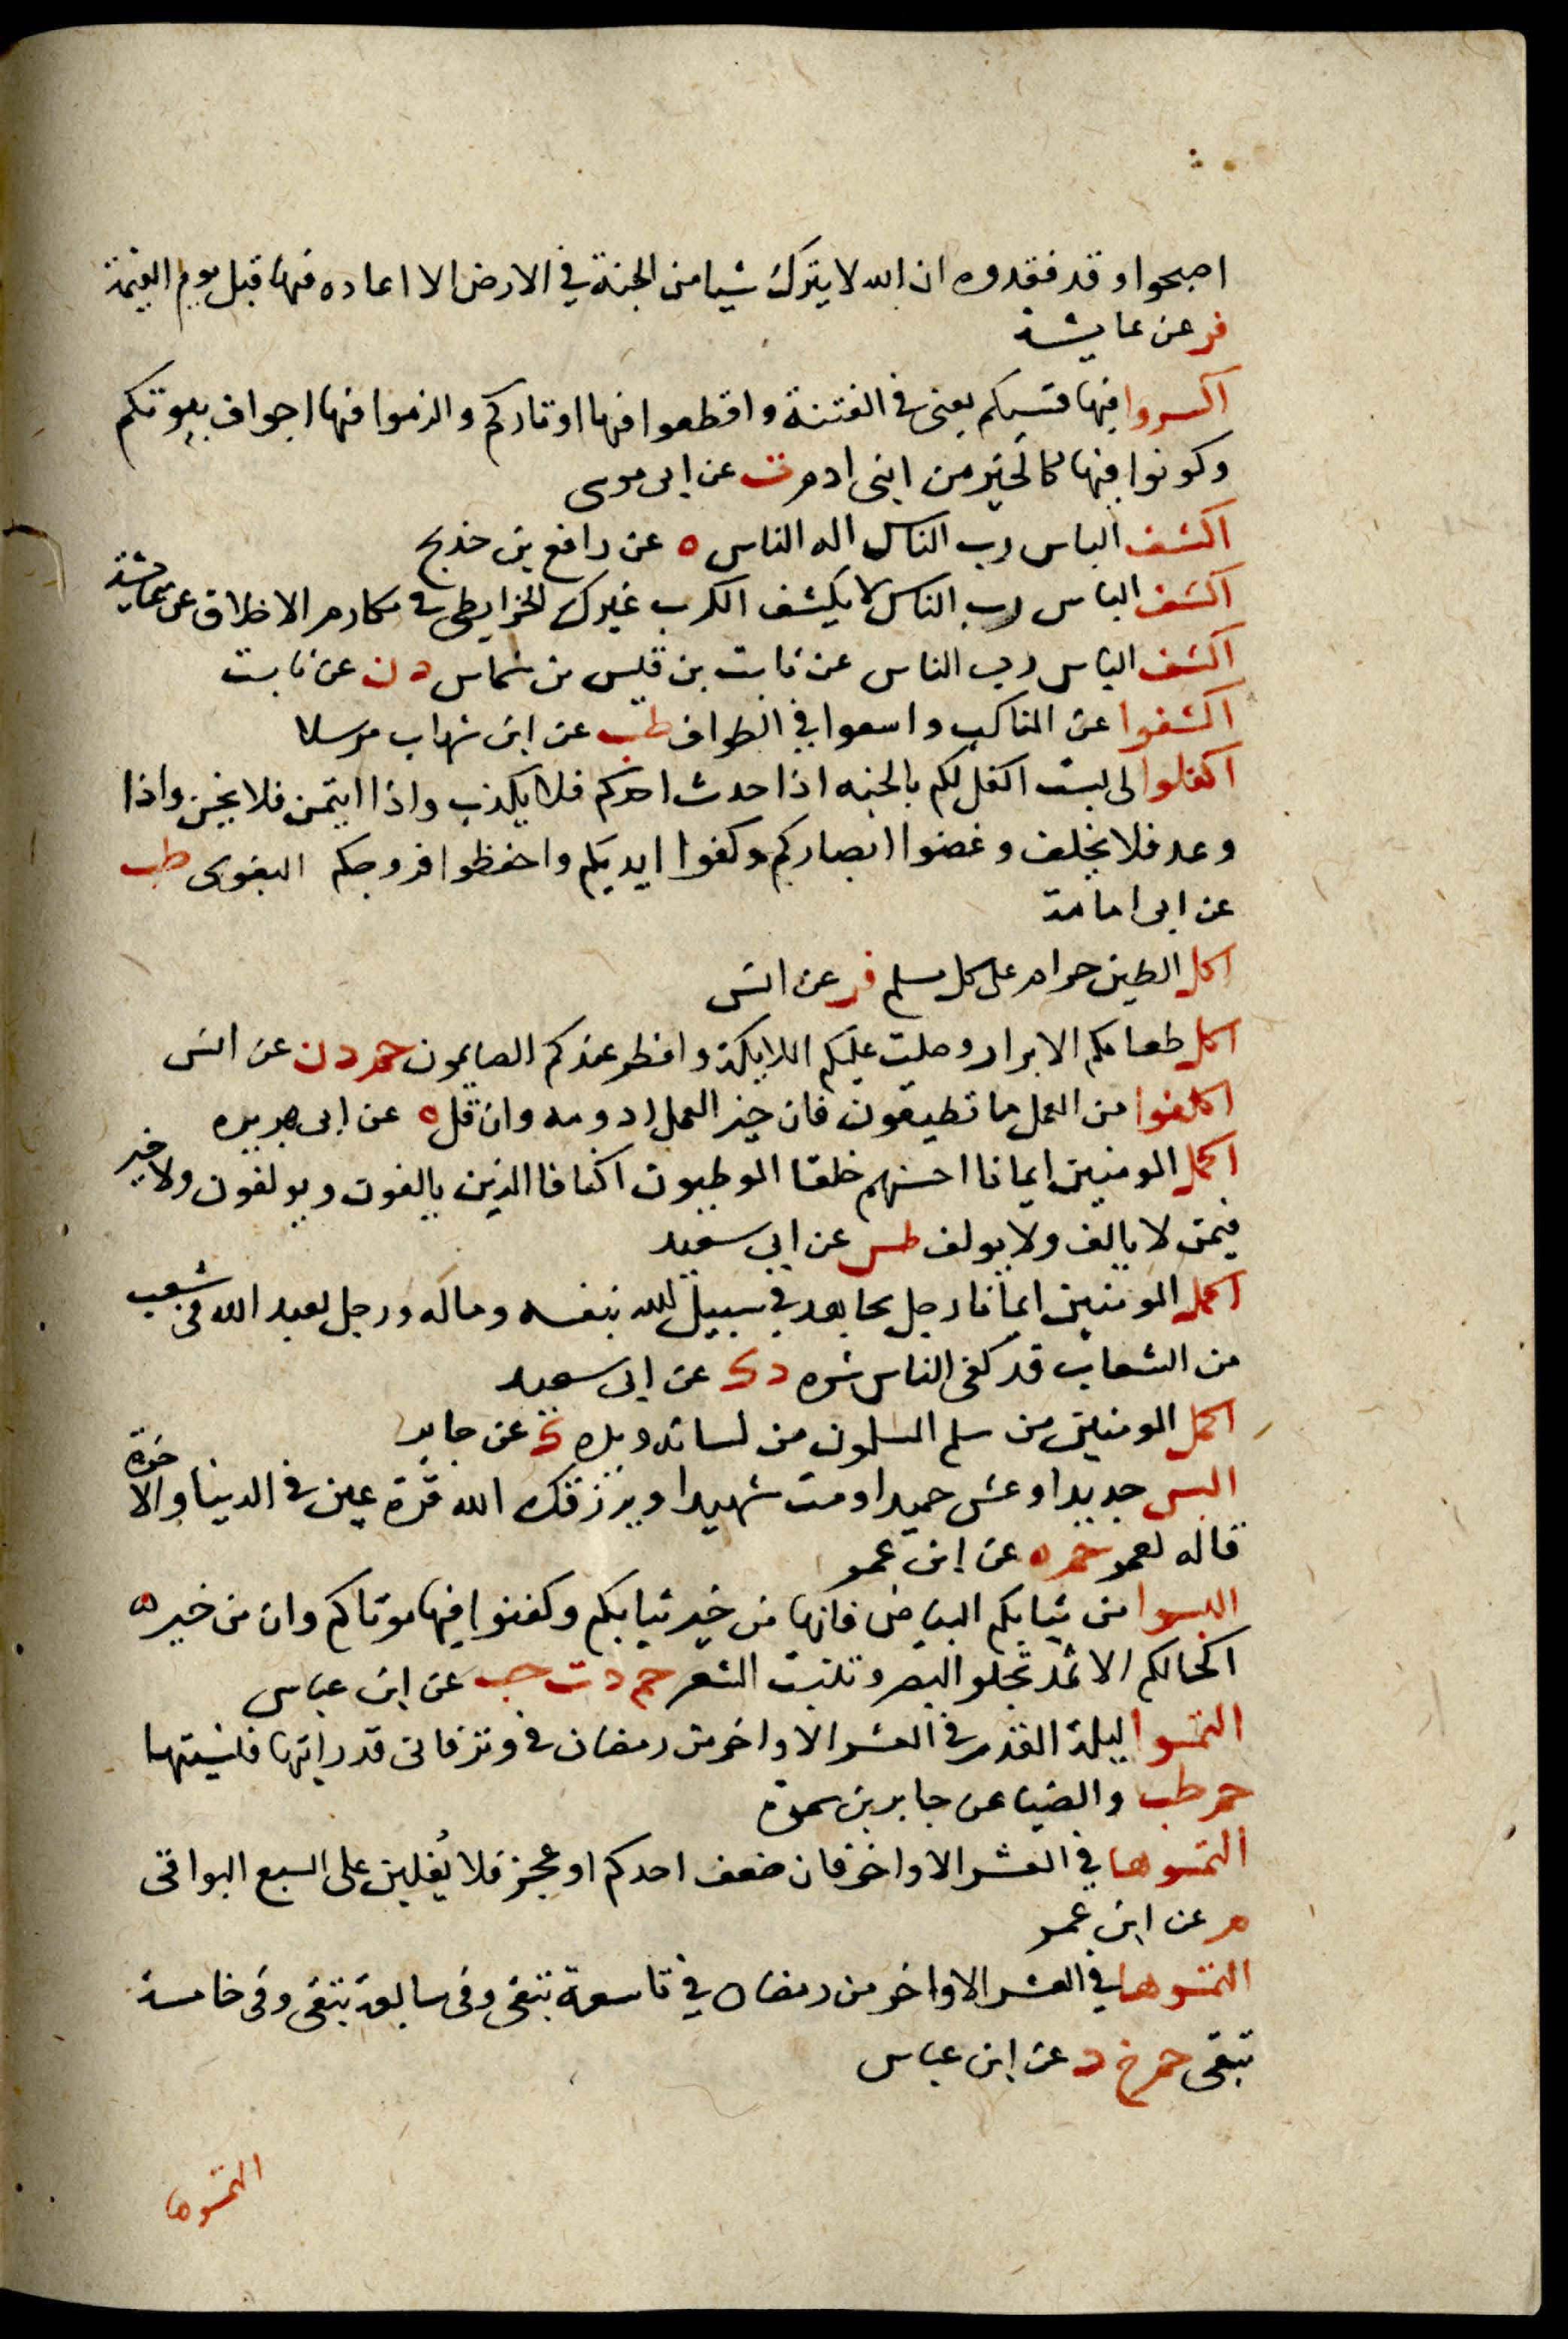 اصبحوا وقد فقدوه ان الله لا يترك شيا من الجنة في الارض الا اعاده فيها قبل يوم القيمة
فر عن عايشة
اكسروا فيها قسيكم يعني في الفتنة واقطعوا فيها اوتاركم والزموا فيها اجواف بيوتكم
وكونوا فيها كالخير من ابني ادم ت عن ابى موسى
اكشف الباس رب الناس اله الناس ه عن رافع بن خديج
اكشف الباس رب الناس لا يكشف الكرب غيرك الخرايطى في مكارم الاخلاق عن عايشة
اكشف الباس رب الناس عن ثابت بن قيس بن شماس د ن عن ثابت
اكشفوا عن المناكب واسعوا في الطواف طب عن ابن شهاب مرسلا
اكفلوا لى بست اكفل لكم بالجنه اذا حدث احدكم فلا يكذب واذا ايتمن فلا يخن واذا
وعد فلا يخلف وغضوا ابصاركم وكفوا ايديكم واحفظوا فروجكم البغوى طب
عن ابى امامة
اكل الطين حرام على كل مسلم فر عن انس
اكل طعامكم الابرار وصلت عليكم الملايكة وافطر عندكم الصايمون حم د ن عن انس
اكلفوا من العمل ما تطيقون فان خير العمل ادومه وان قل ه عن ابى هريره
اكمل المومنين ايمانا احسنهم خلقا الموطيون اكنافا الذين يالفون ويولفون ولا خير
فيمن لا يالف ولا يولف طس عن ابي سعيد
اكمل المومنين ايمانا رجل يجاهد في سبيل الله بنفسه وماله ورجل يعبد الله في شعب
من الشعاب قد كفى الناس شره د ك عن ابى سعيد
اكمل المومنين من سلم المسلمون من لسانه ويده ك عن جابر
البس جديدا وعش حميدا ومت شهيدا ويرزقك الله قرة عين في الدنيا والاخرة
قاله لعمر حم ه عن ابن عمر
البسوا من ثيابكم البياض فانها من خير ثيابكم وكفنوا فيها موتاكم وان من خير
اكحالكم الاثمد تجلو البصر وتنبت الشعر حم د ت حب عن ابن عباس
التمسوا ليلة القدر في العشر الاواخر من رمضان في وتر فانى قد رايتها فنسيتها
حم طب والضيا عن جابر بن سمرة
التمسوها في العشر الاواخر فان ضعف احدكم او عجز فلا يُغلبن على السبع البواقى
م عن ابن عمر
التمسوها في العشر الاواخر من رمضان في تاسعة تبقى وفي سابعة تبقى وفي خامسة
تبقى حم خ د عن ابن عباس
التمسوها